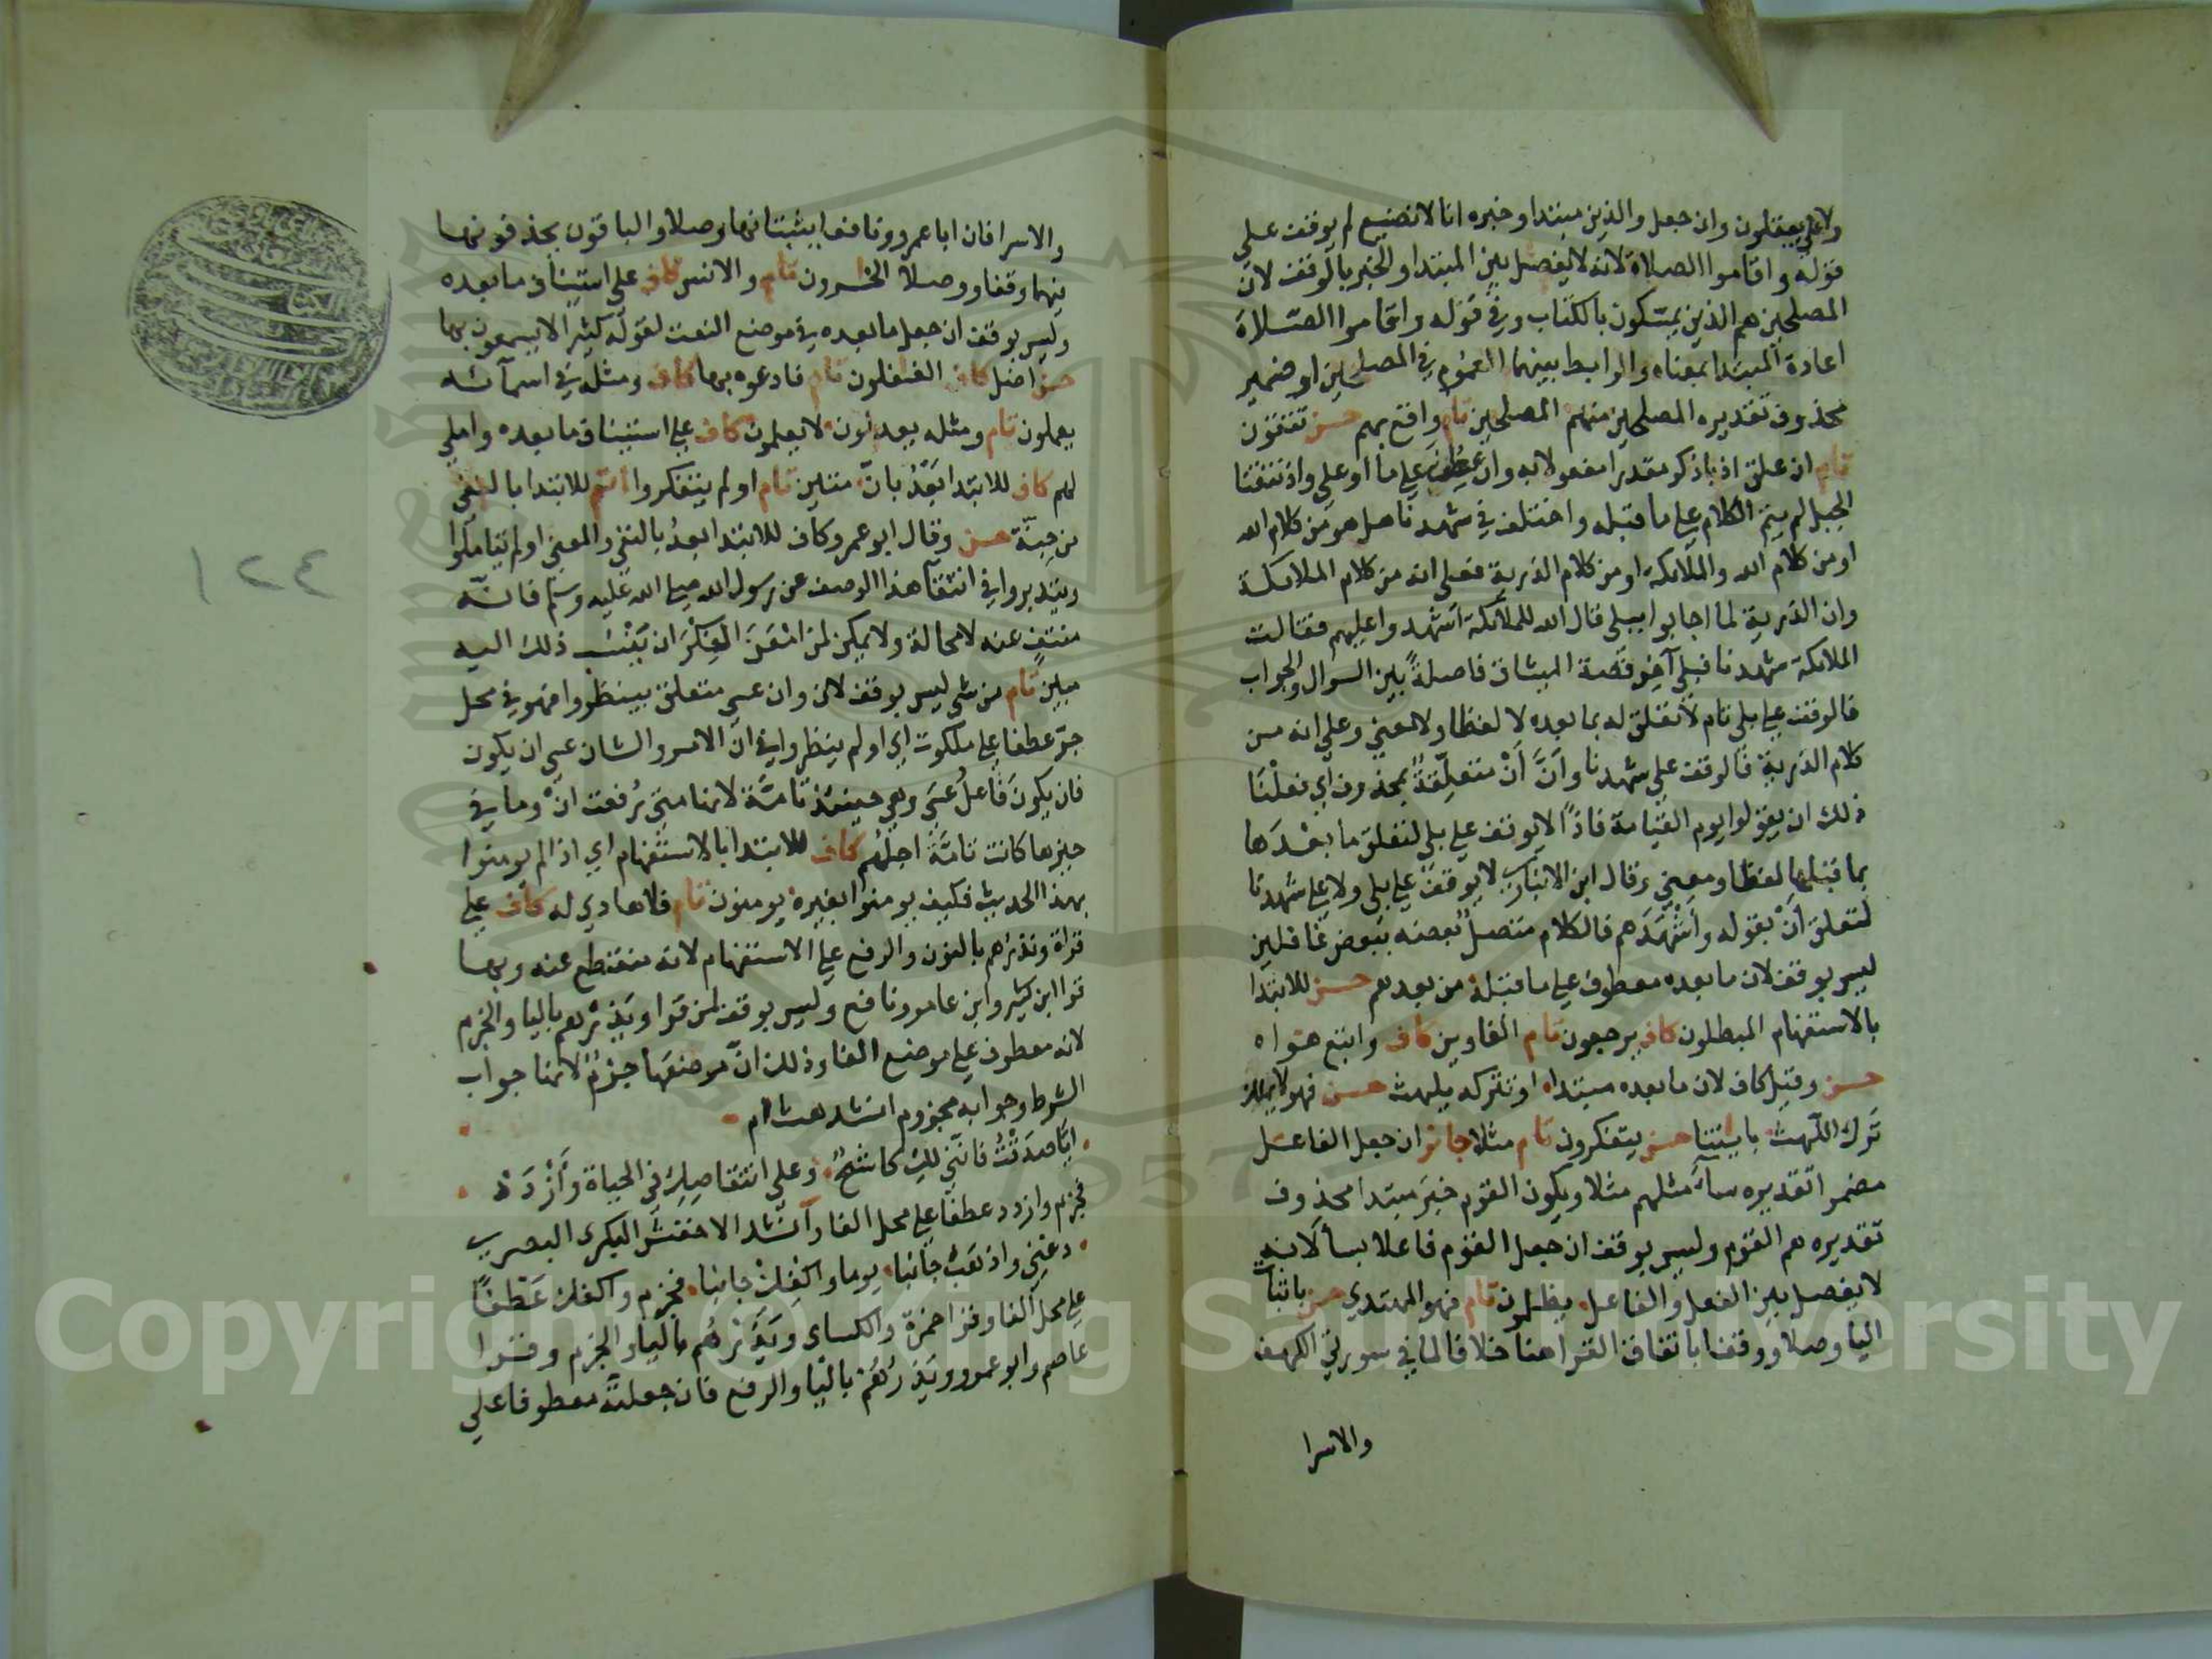 ولا على يعقلون وان جعل والذين مبتدا وخبره انا لا نضيع لم يوقف على
قوله واقاموا الصلاة لانه لا يفصل بين المبتدا والخبر بالوقف لان
المصلحين هم الذين يمسّكون بالكتاب وفي قوله واقاموا الصّلاة
اعادة المبتدا بمعناه والرابط بينهما العموم في المصلحين او ضمير
محذوف تقديره المصلحين منهم المصلحين تام واقع بهم حسن تتقون
تام ان علق اذ باذكر مقدرا مفعولا به وان عطف على ما او على واذ نتقنا
الجبل لم يتم الكلام على ما قبله واختلف في شهدنا هل هو من كلام الله
او من كلام الله والملائكة او من كلام الذرية فعلى انه من كلام الملائكة
وان الذرية لما اجابوا ببلى قال الله للملائكة اشهدوا عليهم فقالت
الملائكة شهدنا قبلى آخر قصة الميثاق فاصلةً بين السوال والجواب
فالوقف على بلى تام لا تعلق له بما بعده لا لفظا ولا معنى وعلى انه من
كلام الذرية فالوقف على شهدنا وانّ أنْ متعلّقةٌ بمحذوف اي فعلْنا
ذلك ان يقولوا يوم القيامة فاذًا لا يوقف على بلى لتعلق ما بعْدَها
بما قبلها لفظا ومعنى وقال ابن الانباري لا يوقف على بلى ولا على شهدنا
لتعلق أنْ بقوله وأشْهَدَهم فالكلام متصلٌ بعضه ببعض غافلين
ليس بوقف لان ما بعده معطوف على ما قبله من بعدهم حسن للابتدا
بالاستفهام المبطلون كاف يرجعون تام الغاوين كاف واتبع هواه
حسن وقيل كاف لان ما بعده مبتدا او تتركه يلهث حسن فهو لا يملك
ترك اللّهث باياتنا حسن يتفكرون تام مثلا جائز ان جعل الفاعل
مضمرا تقديره ساءَ مثلهم مثلا ويكون القوم خبرَ مبتدا محذوف
تقديره هم القوم وليس بوقف ان جعل القوم فاعلا بساء لانه
لا يفصل بين الفعل والفاعل يظلمون تام فهو المهتدي حسن باثبات
اليا وصلا ووقفا باتفاق القرا هنا خلافا لما في سورتي الكهف
والاسرا
والاسرا فان ابا عمرو ونافعا يثبتانها وصلا والباقون بحذفونها
فيهما وقفا ووصلا الخسرون تام والانس كاف على استيناف ما بعده
وليس بوقف ان جعل ما بعده في موضع النعت لقوله كثيرا لا يسمعون بها
حسن اضل كاف الغفلون تام فادعوه بها كاف ومثله في اسمآئه
يعملون تام ومثله يعدلون لا يعلمون كاف على استيناف ما بعده واملي
لهم كاف للابتدا بَعْدُ بانّ متين تام اولم يتفكروا أتم للابتدا بالنفي
من جِنّة حسن وقال ابو عمرو كاف للابتدا بعدُ بالنفي والمعنى اولم يتاملوا
ويتدبروا في انتفآ هذا الوصف عن رسول الله صلى الله عليه وسلم فانّه
منتفٍ عنه لا محالة ولا يمكن لمن امْعَنَ الفِكْرَ ان يَنْسُبَ ذلك اليه
مبين تام من شي ليس بوقف لان وان عسى متعلق بينظروا فهو في محل
جرّ عطفا على ملكوت اي اولم ينظروا في انّ الامر والشان عسى ان يكون
فان يكونَ فَاعلُ عَسَى وهي حينئذ تامّة لانها متى رُفعت انْ وما في
حيزها كانت تامّةً اجلهُم كاف للابتدا بالاستفهام اي اذا لم يومنوا
بهذا الحديث فكيف يومنوا بغيره يومنون تام فلا هادي له كاف على
قراة ونذرُهم بالنون والرفع على الاستفهام لانه منقطع عنه وبها
قرا ابن كثير وابن عامر ونافع وليس بوقف لمن قرا ويَذَرْهم باليا والجزم
لانه معطوف على موضع الفا وذلك انّ موضعَها جزمٌ لانها جواب
الشرط وجوابه مجزوم انشد هشام
ايّا صدَقْتُ فانّني لك كاشحٌ وعلى انتقاصِك في الحياة وأزْدَدْ
فجزم وازدد عطفا على محل الفا وآنشد الاخفش البكرى البصري
دعْني واذهَبْ جانبا يوما واكفِك جانبا فجزم واكفك عَطْفًا
على محل الفا وقرا حمزة والكساى ويَذَرْهُم باليا والجزم وقرا
عاصم وابو عمرو ويَذَرُهُمْ باليا والرفع فان جعلتَه معطوفا على
١٢٤
Copyright © King Saud University
1957